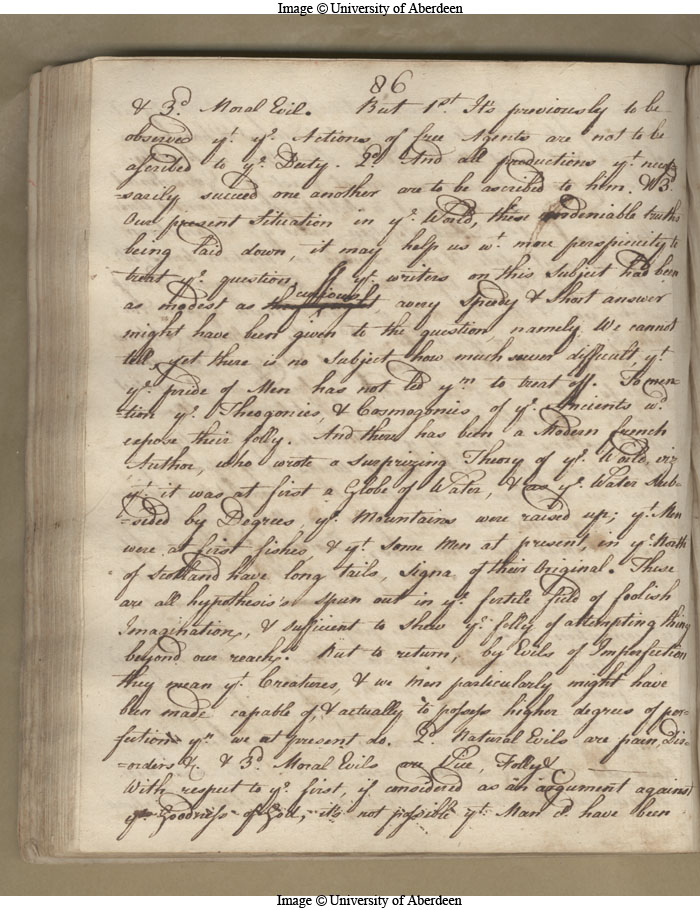 Image © University of Aberdeen
86
& 3.d Moral Evil. But 1st. It's previously to be
observed yt. ye. Actions of free Agents are not to be
ascribed to ye. Deity. 2d. And all productions yt. neces
=sarily succeed one another are to be ascribed to him. & 3d.
Our present Situation in ye. World, these undeniable truths
being laid down, it may help us wt. more perspicuity to
treat ye. question. If ye. writers on this Subject had been
as modest as curious, a very Speedy & Short answer
might have been given to the question, namely We cannot
tell, yet there is no Subject how much soever difficult yt.
ye. pride of Men has not led ym. to treat off. To men=
=tion ye. Theogonies, & Cosmogonies of ye. Ancients wd.
expose their folly. And there has been a Modern french
Author, who wrote a surprizing Theory of ye. World, viz
yt. it was at first a Globe of Water, & as ye. Water Sub=
=sided by Degrees, ye. Mountains were raised up; yt. Men
were at first fishes, & yt. some Men at present, in ye. North
of Scotland have long tails, Signa of their Original. These
are all hypothesis's spun out in ye. fertile field of foolish
Imaginations, & sufficient to shew ye. folly of attempting things
beyond our reach. But to return, by Evils of Imperfection
they mean yt. Creatures, & we Men particularly might have
been made capable of, & actually to possess higher degrees of per=
=fection yn. we at present do. 2. Natural Evils are pain, Dis=
=orders &c. & 3d. Moral Evils are Vice, Folly &c
With respect to ye. first, if considered as an argument against
ye. Goodness of God, it's not possible yt. Man cd. have been
Image © University of Aberdeen